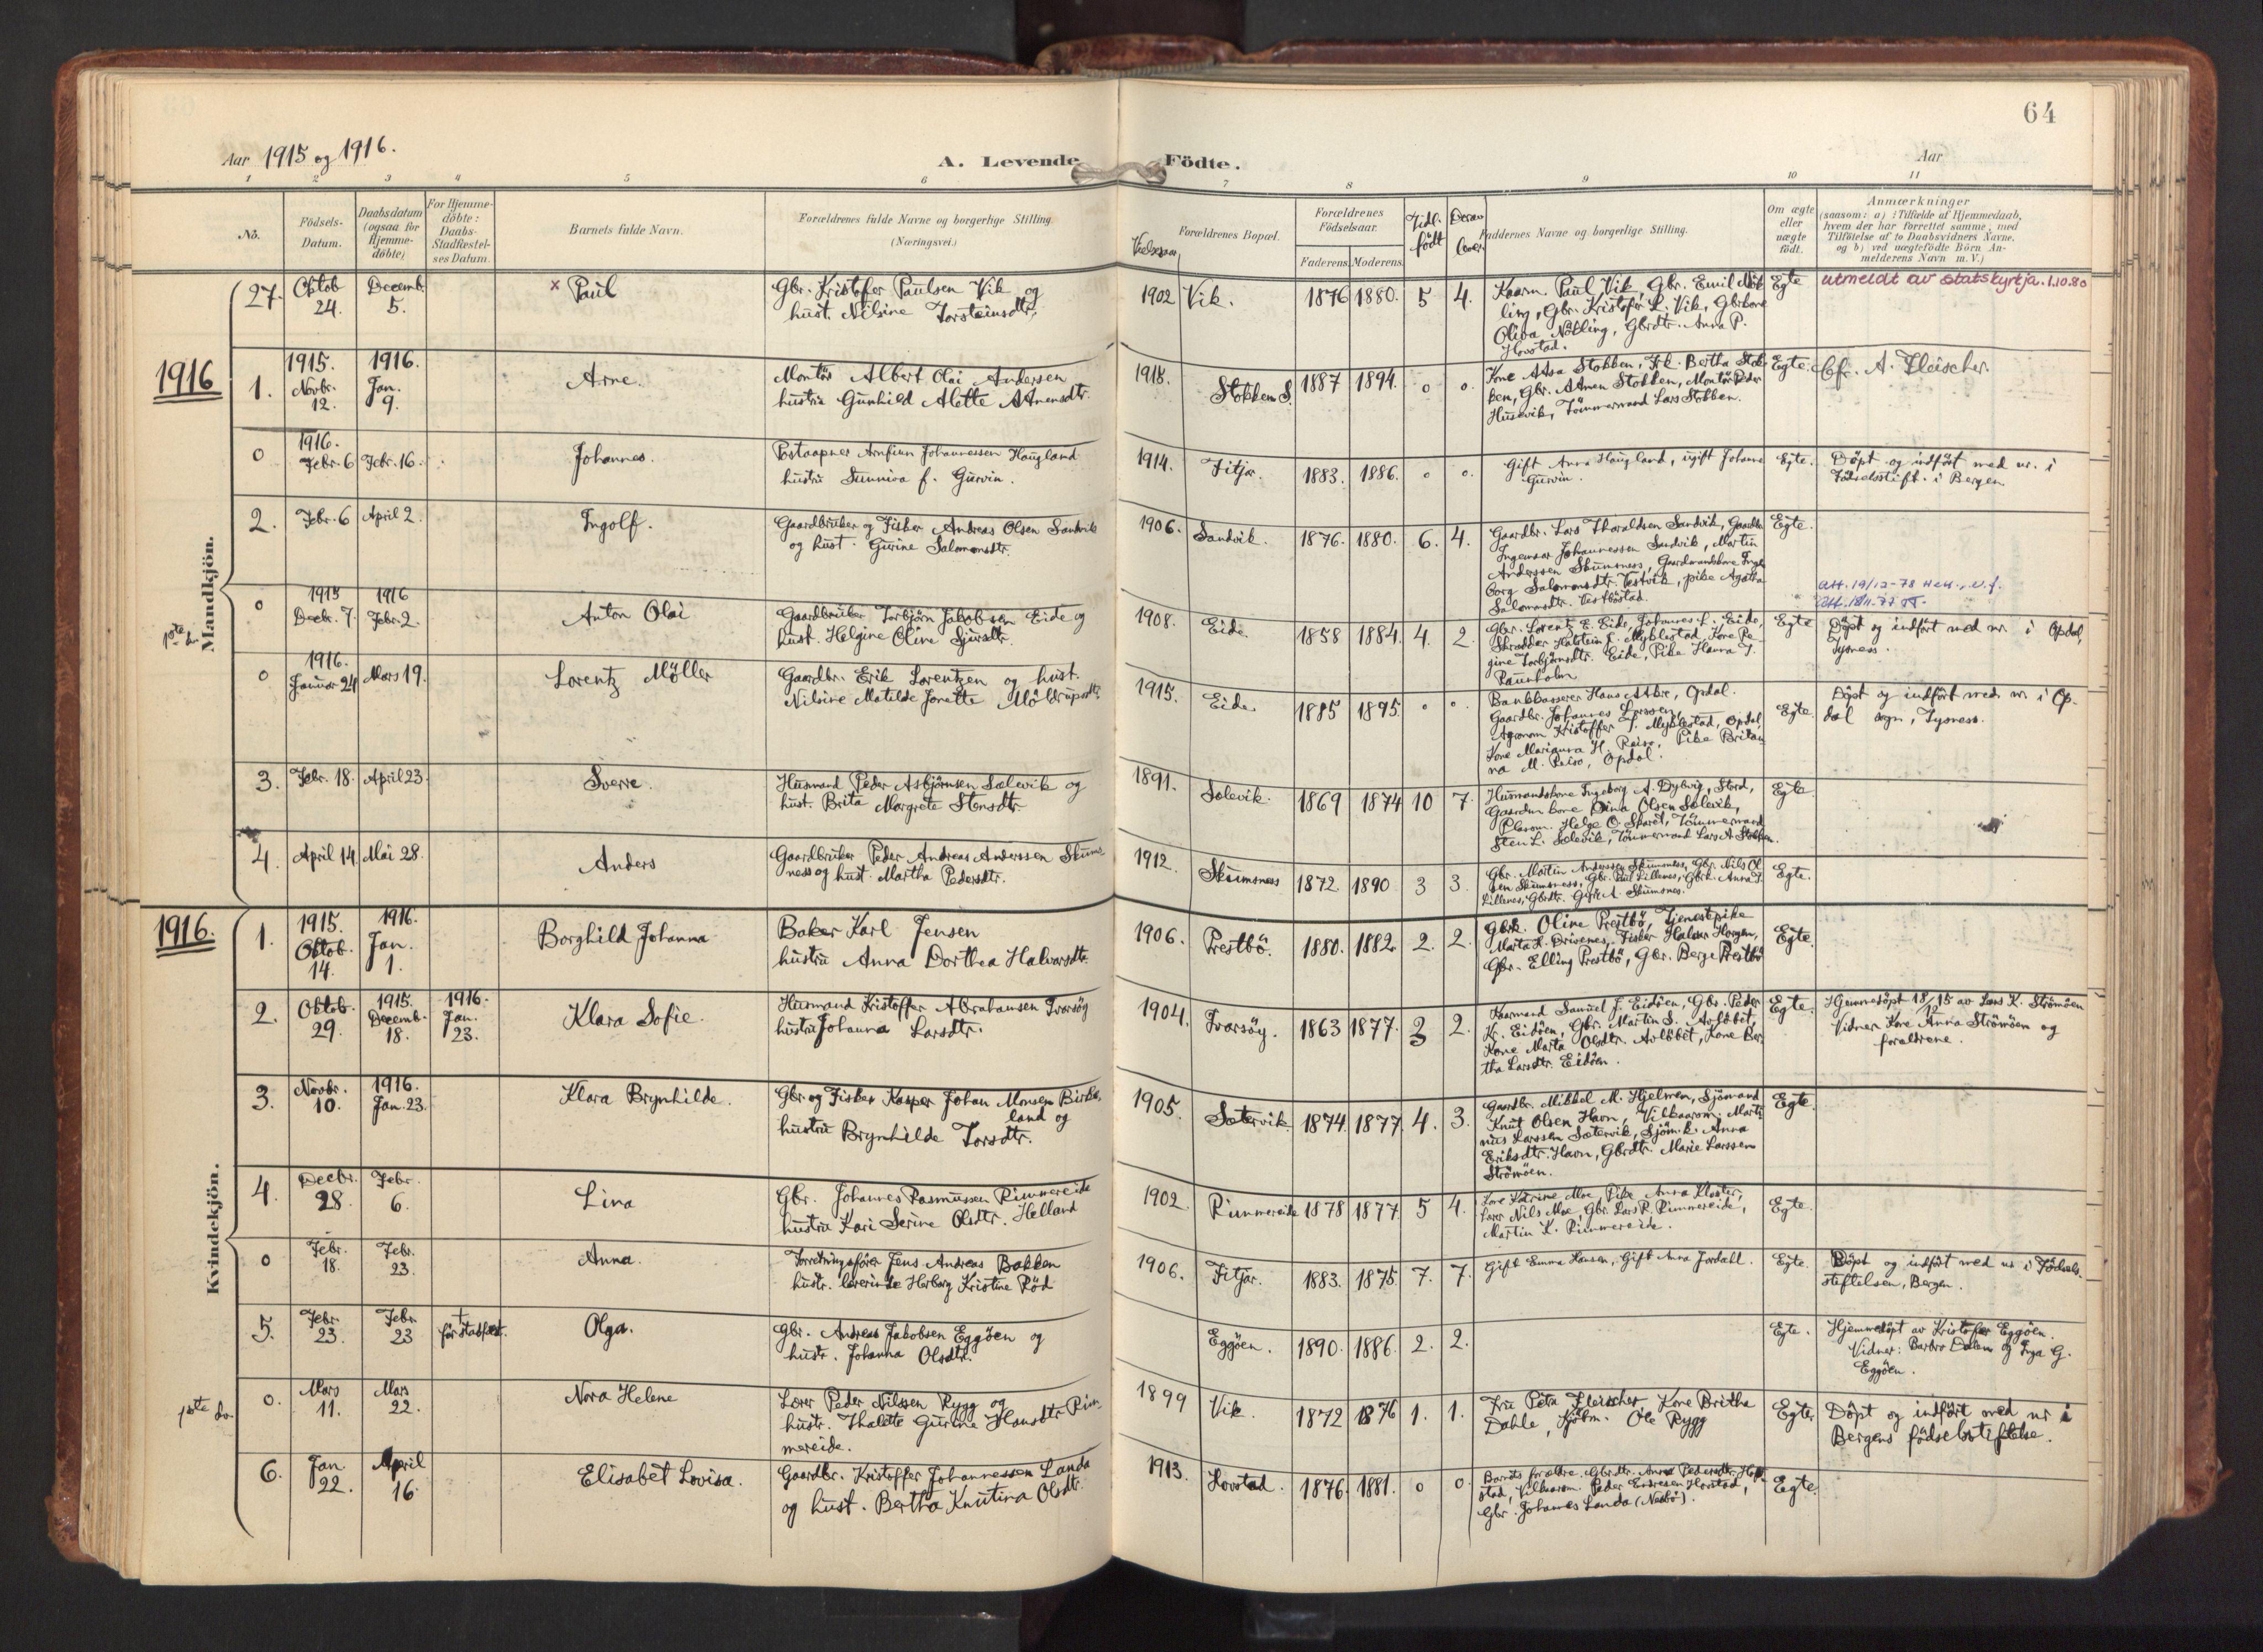 64
Aar 1915 og 1916.
A. Levende Födte.
Aar
1 2 3 4 5 6 7 8 9 10 11
No.
Födsels-Datum.
Daabsdatum (ogsaa for Hjemme-döbte)
For Hjemme-döbte: Daabs-Stadfæstel-ses Datum.
Barnets fulde Navn.
Forældrenes fulde Navne og borgerlige Stilling. (Næringsvei.)
Forældrenes Bopæl.
Forældrenes Födselsaar.
Faderens. Moderens.
Tidl. födt
Derav
Faddernes Navne og borgerlige Stilling.
Om ægte eller uægte födt.
Anmærkninger
(saasom: a) i Tilfælde af Hjemmedaab, hvem der har forrettet samme, med Tilföielse af to Daabsvidners Navne, og b) ved uægtefödte Börn Anmelderens Navn m. V.)
Mandkjön.
27. Oktob. 24. Decemb. 5.
x Paul
Gbr. Kristofer Paulsen Vik og
hust. Nilsine Torsteinsdtr.
1902 Vik. 1876 1880. 5 4.
Kaarm. Paul Vik, Gbr. Emil Nök
ling, Gbr. Kristofer L. Vik, Gbrkone
Oliva Nökling, Gbrdtr. Anna P.
Hovstad.
Egte
utmeldt av statskyrkja. 1.10.80
1916
1. 1915. Novbr. 12. 1916. Jan. 9.
Arne.
Montör Albert Olai Andersen
hustru Gunhild Alette
Stokken S. 1887 1894. 0 0.
Kone Stokken, Frk. Bertha Stok
ken, Gbr. Stokken, Montör Peder
Husevik, Tömmermand Lars Stokken.
Egte. A. Fleischer.
0 1916. Febr. 6 Febr. 16.
Johannes.
Postaapner Arnfinn Johannessen Haugland
hustru Sunniva f. Gurvin.
1914. Fitjar. 1883. 1886. 0 0.
Gift Anna Haugland, ugift Johanne
Gurvin.
Egte.
Döpt og indfört med nr. i
Födselsstift. i Bergen
2. Febr. 6 April 2.
Ingolf.
Gaardbruker og Fisker Andreas Olsen Sandvik
og hust. Gurine Salomonsdtr.
1906. Sandvik. 1876. 1880. 6. 4.
Gaardbr. Lars Thoraldsen Sandvik, Gaardbr
Ingemar Johannessen Sandvik, Martin
Anderssen Skumsness, Gaardmandskone Inge
borg Salomonsdtr. Vestvik, pike Agatha
Salomonsdtr. Vestböstad.
Egte.
0 1915 Decbr. 7. 1916 Febr. 2.
Anton Olai
Gaardbruker Torbjörn Jakobsen Eide og
hust. Helgine Oline Sjursdtr.
1908. Eide. 1858 1884. 4. 2.
Gbr. Lorentz E. Eide, Johannes L. Eide,
Skrædder Halstein J. Myklestad, Kone Re
gine Torbjörnsdtr. Eide, Pike Hanna J.
Raunholm
Egte
Döpt og indfört med nr. i Opdal,
Tysness.
0 1916. Januar 24 Mars 19.
Lorentz Möller
Gaardbr. Erik Lorentzen og hust.
Nilsine Matilde Jonette
1915. Eide 1885 1895. 0 0.
Bankkasserer Hans Opdal.
Gaardbr. Johannes Larssen,
Agronom Kristoffer J. Myklestad, Opdal,
Kone Marianna H. Reiso, Pike Britan
na M. Reiso, Opdal.
Egte.
Döpt og indfört med nr. i Op-
dal sogn, Tysness.
3. Febr. 18. April 23.
Sverre.
Husmand Peder Asbjörnsen Sælevik og
hust. Brita Margrete Stensdtr.
1891. Sælevik. 1869 1874 10 7.
Husmandskone Ingeborg A. Dybvig, Stord,
Gaardm. kone Dina Olsen Sælevik,
Plassm. Helge O. Skaret, Tömmermand
Sten L. Sælevik, Tömmermand Lars A. Stokken.
Egte.
4. April 14. Mai 28.
Anders
Gaardbruker Peder Andreas Anderssen Skums
ness og hust. Martha Pedersdtr.
1912. Skumsness 1872 1890 3 3.
Gbr. Martin Anderssen Skumsness, Gbr. Nils Ol
sen Skumsness, Gbr. Paul Lillenes, Gbrk. Anna J.
Lillenes, Gbrdtr. A. Skumsness.
Egte.
1916.
Kvindekjön.
1. 1915. Oktob. 14. 1916. Jan. 1.
Borghild Johanna
Baker Karl Jensen
hustru Anna Dorthea Halvorsdtr.
1906. Prestbö. 1880. 1882. 2. 2.
Gbrk. Oline Prestbö, Tjenestepike
Marta K. Drivenes, Fisker Halvar Horgen,
Gbr. Elling Prestbö, Gbr. Berge Prestbö
Egte.
2. Oktob. 29. 1915. Decemb. 18. 1916. Jan. 23.
Klara Sofie.
Husmand Kristoffer Abrahamsen Ivarsöy
hustru Johanna Larsdtr.
1904. Ivarsöy. 1863 1877. 3 2.
Kaarmand Samuel J. Eidöen, Gbr. Peder
Kr. Eidöen, Gbr. Martin S. Avlöbet,
Kone Marta Olsdtr. Avlöbet, Kone Ber
tha Larsdtr. Eidöen.
Egte.
Hjemmedöpt 18/12 15 av Lars K. Strömöen
Vidner Kone Anna Strömöen og
forældrene.
3. Novbr. 10. 1916. Jan. 23.
Klara Brynhilde.
Gbr. og Fisker Kasper Johan Monsen Birke
land og
hustru Brynhilde Torsdtr.
1905. Sætervik. 1874. 1877. 4. 3.
Gaardbr. Mikkel M. Hjelmen, Sjömand
Knut Olsen Havn, Vilkaarsm. Marti
nus Larssen Sætervik, Sjöm.k. Anna
Eriksdtr. Havn, Gbrdtr. Marie Larssen
Strömöen.
Egte.
4. Decbr. 28. Febr. 6.
Lina
Gbr. Johannes Rasmussen Rimmereide
hustru Kari Serine Olsdtr. Helland
1902. Rimmereide 1878 1877. 5 4.
Kone Katrine Moe, Pike Anna Kloster,
Lærer Nils Moe, Gbr. Lars R. Rimmereide,
Martin K. Rimmereide.
Egte.
0 Febr. 18. Febr. 23.
Anna.
Forretningsförer Jens Andreas Bakken
hustr. lærerinde Herborg Kristine Röd
1906. Fitjar. 1883. 1875. 7. 7.
Gift Emma Hansen, Gift Anna Jordahl.
Egte.
Döpt og indfört med nr i Födsels-
stiftelsen, Bergen.
5. Febr. 23. Febr. 23 † för stadfæst.
Olga.
Gbr. Andreas Jakobsen Eggöen og
hustr. Johanna Olsdtr.
Eggöen. 1890. 1886. 2. 2.
Egte.
Hjemmedöpt av Kristofer Eggöen.
Vidner: Barbro Dalen og Inga G.
Eggöen.
0. Mars 11. Mars 22.
Nora Helene
Lærer Peder Nilssen Rygg og
hustr. Thalette Gurine Hansdtr Rim
mereide.
1899 Vik. 1872 1876 1. 1.
Fru Petra Fleischer Kone Britha
Dahle, Kjöbm. Ole Rygg
Egte
Döpt og indfört med nr i
Bergens födselsstiftelse.
6. Jan. 22. April 16.
Elisabet Lovisa.
Gaardbr. Kristoffer Johannessen Landa
og hust. Bertha Knutina Olsdtr.
1913. Hovstad. 1876. 1881. 0 0.
Barnets forældre. Gbrdtr. Anna Pedersdtr. Hov
stad, Vilkaarsm. Peder Endresen Hovstad,
Gbr. Johannes Landa (Nesbö).
Egte.